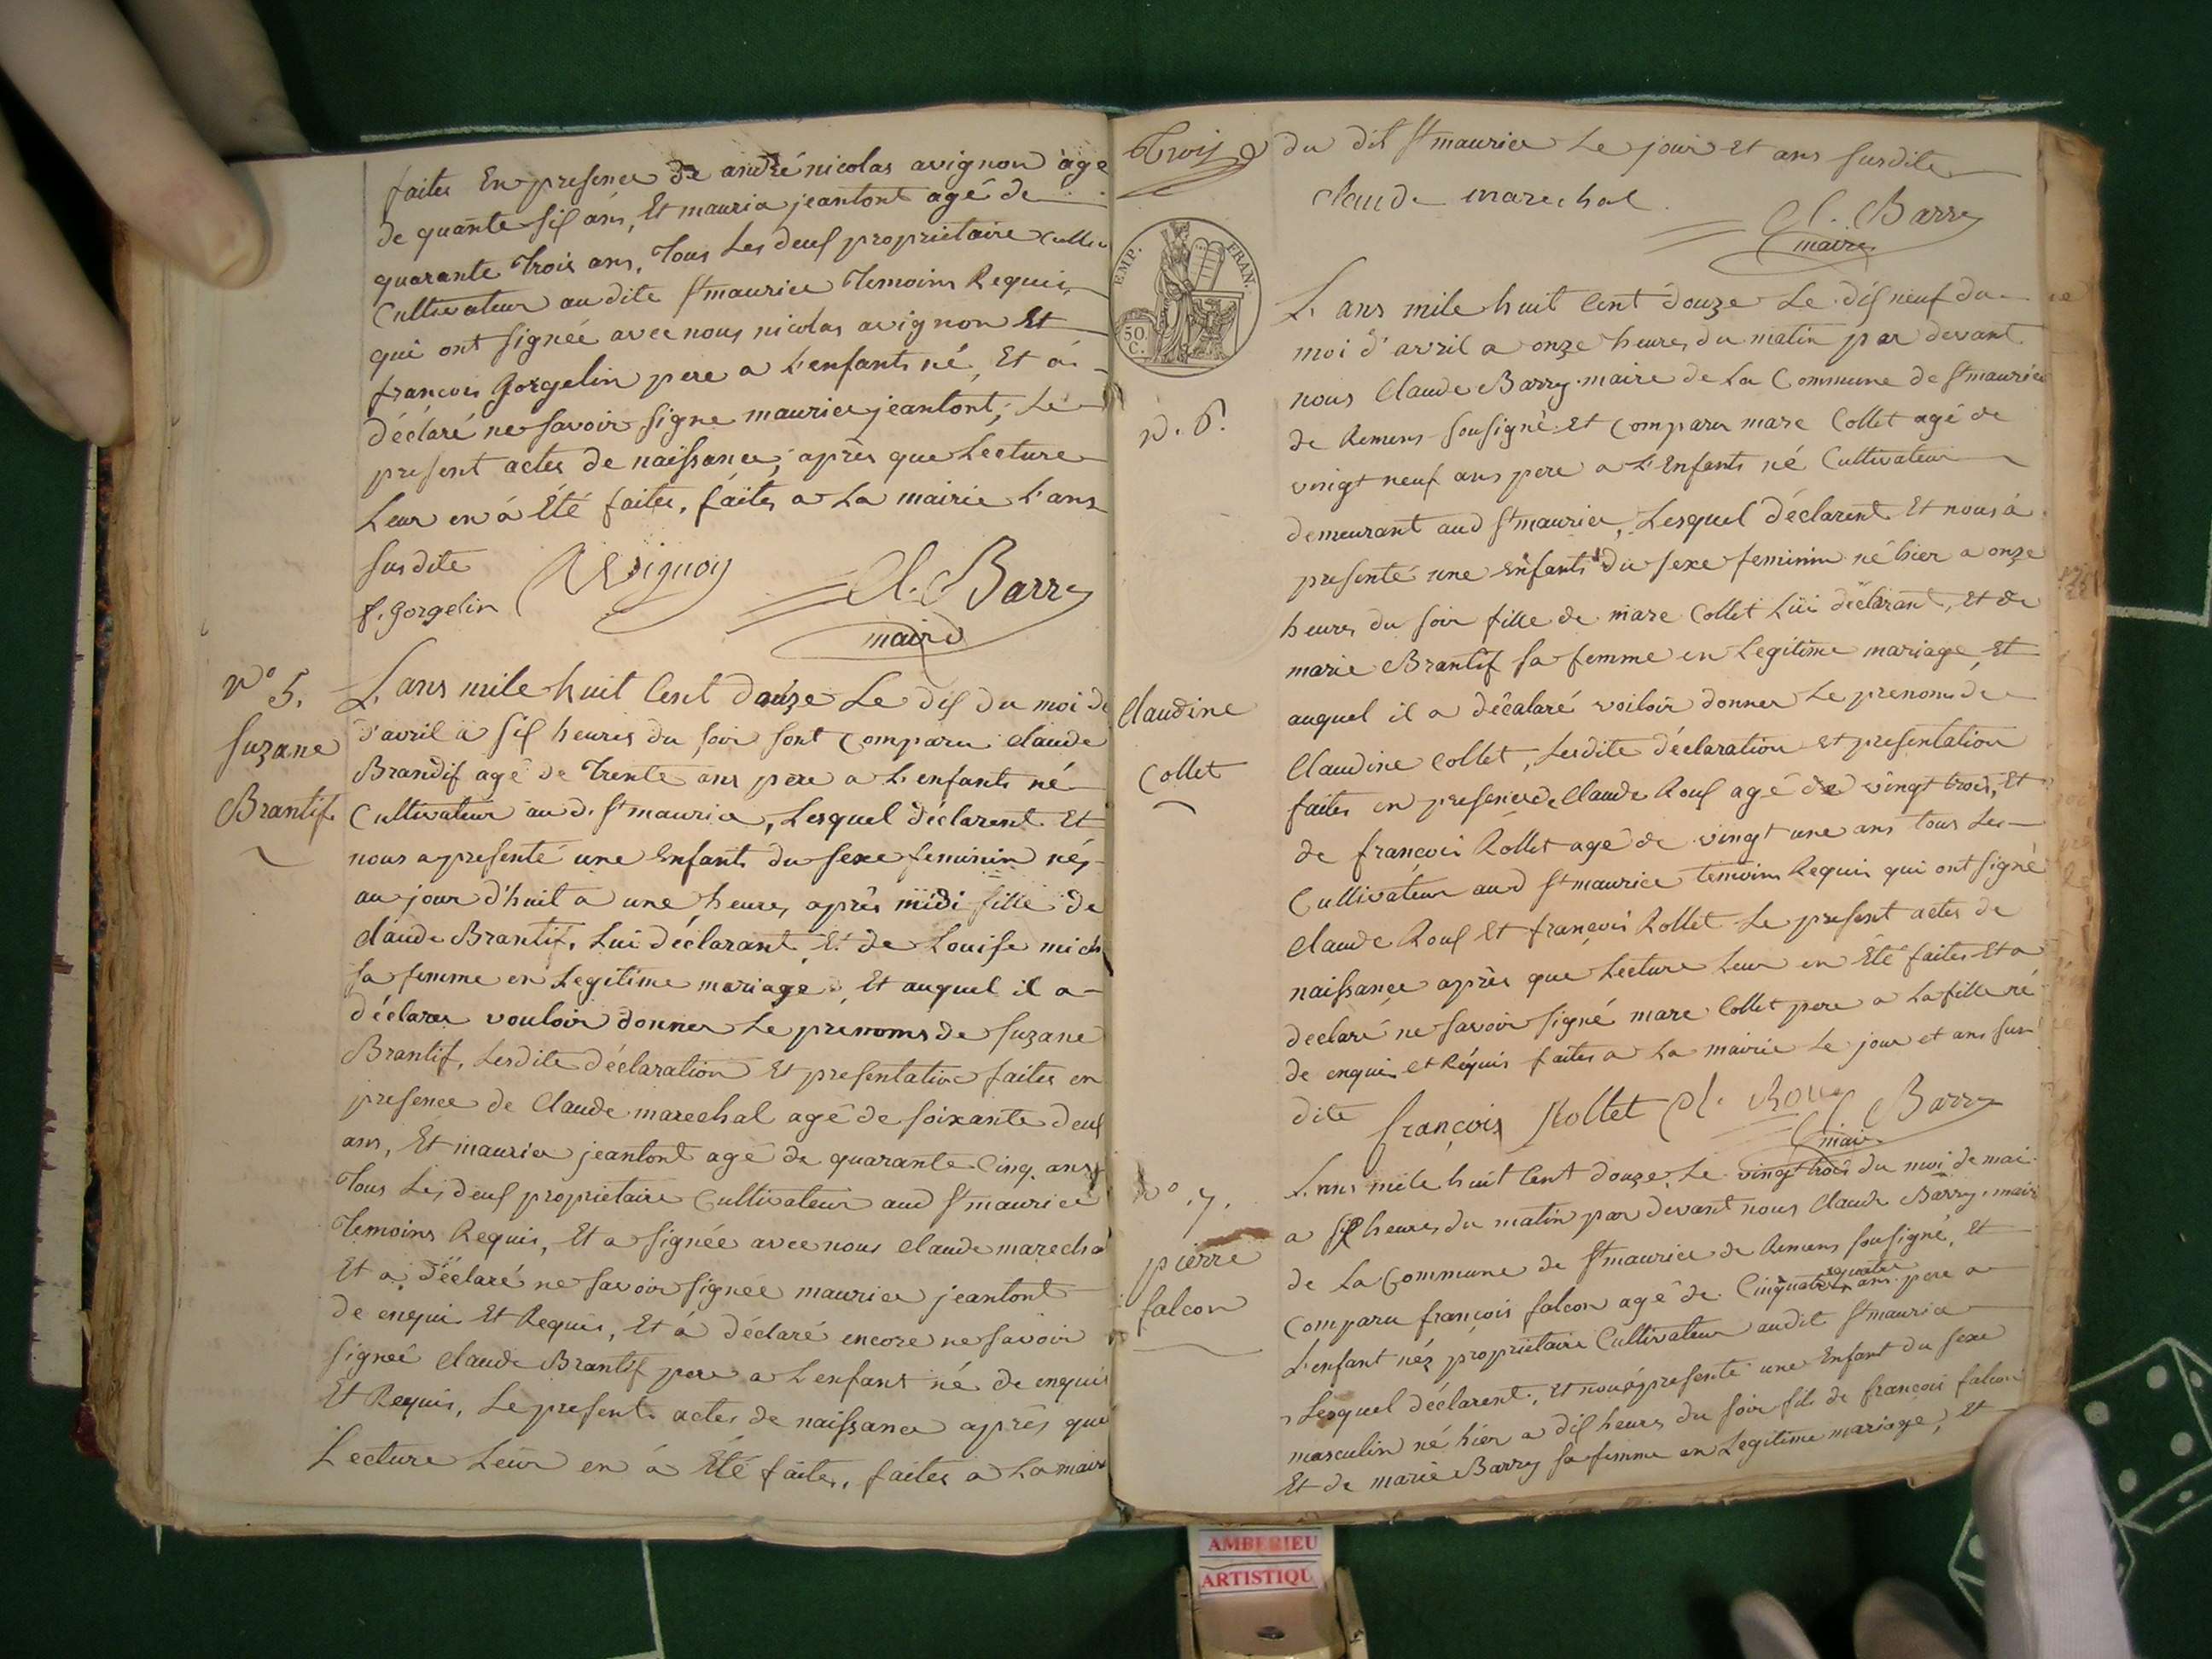 faites En presence de andré nicolas avignon age
de quarante six ans, Et maurice jeantont agé de
quarante trois ans, Tous Les deux proprietaire
Cultivateur au dite St maurice Temoins Requis
qui ont signée avec nous nicolas avignon Et
francois Gorgelin pere a L'enfants né, Et á
déclaré ne savoir signe maurice jeantont, Le
present actes de naissance, après que Lecture
Leur en á Été faites, faites a La mairie L'ans
susdite
f. gorgelin Avignon Cl. Barry
maire
N° 5.
Suzane
Brantif
L'ans mile huit Cent douze Le dix du moi de
d'avril à six heures du soir sont comparu claude
Brandif agé de Trente ans père a L'enfants né
Cultivateur au d. St maurice, Lesquel déclarent Et
nous a presenté une Enfants du sexe feminin néz
au jour d'huit a une heures après midi fille de
claude Brantif, Lui déclarant, Et de Louise mich
sa femme en Legitime mariage, Et auquel il a
déclarer vouloir donner Le prenoms de Suzane
Brantif, Lesdite déclaration Et presentation faites en
presence de Claude marechal agé de soixante deux
ans, Et maurice jeantont agé de quarante Cinq ans
Tous Les deux proprietaire Cultivateur aud St maurice
Temoins Requis, Et a signée avec nous claude marechal
Et a déclaré ne savoir signée maurice jeantont
de enquis Et Requis, Et á déclaré encore ne savoir
signeé Claude Brantif pere a L'enfant né de enquis
Et Requis, Le present actes de naissance après que
Lecture Leur en á Été faites, faites a La mairie
Trois
du dit St maurice Le jour Et ans susdite
Claude marechal
Cl. Barry
maire
EMP. FRAN.
50 C.
n. 6.
Claudine
Collet
L'ans mile huit Cent douze Le dix neuf du
moi d'avril a onze heures du matin par devant
nous Claude Barry maire de La Commune de St maurice
de Remens sousigné Et comparu marc Collet agé de
vingt neuf ans pere a L'Enfants né Cultivateur
demeurant aud St maurice, Lesquel déclarent Et nous á
presenté une enfants du sexe feminin né hier a onze
heures du soir fille de marc Collet Lui déclarant, et de
marie Brantif sa femme en Legitime mariage Et
auquel il a décalaré voiloir donner Le prenoms de
Claudine Collet, Lesdite déclaration et presentation
faites en presence de Claude Roux agé de vingt trois, Et
de françois Rollet agé de vingt une ans tous Les
Cultivateur aud St maurice temoins Requis qui ont signé
Claude Roux Et françois Rollet Le present actes de
naissance après que Lecture Leur en Été faites Et a
declaré ne savoir signé marc Collet pere a La fille né
de enquis et Réquis faites a La mairie Le jour et ans sus
dite françois Rollet Cl. Roux Cl. Barry
maire
N° 7.
pierre
falcon
L'ans mile huit Cent douze Le vingt trois du moi de mai
a six heures du matin par devant nous Claude Barry maire
de La Commune de St maurice de Remens sousigné, Et
Comparu françois falcon agé de Cinquante quatre ans pere a
L'enfant néz propriétaire Cultivateur audit St maurice
Lesquel déclarent, Et nous á presenté une Enfant du sexe
masculin né hier a dix heures du soir fils de francois falcon
Et de marie Barry sa femme en Legitime mariage, Et
AMBERIEU
ARTISTIQU